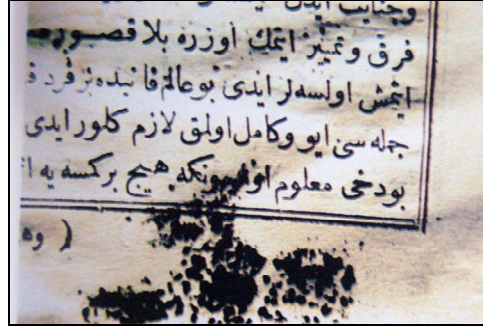 وجنایت ایدن
فرق و تمییز ایتمك اوزره بلا قصور
ایتمش اولسه لر ایدی بو عالم فانیده بر فرد
جمله سی ایو و كامل اولمق لازم كلور ایدی
بو دخی معلوم اوله كه هیچ بر كمسه یه
( وه